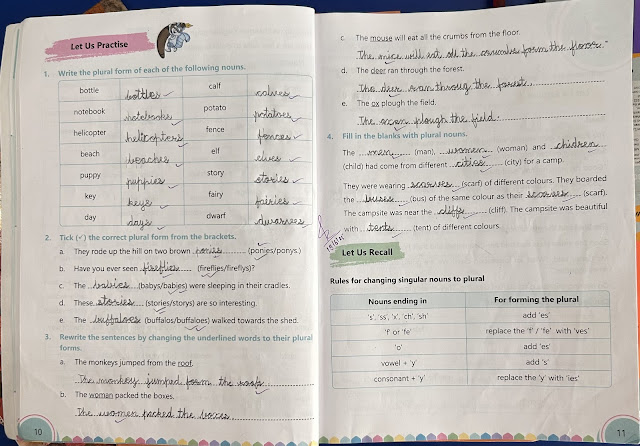 Let Us Practise
1. Write the plural form of each of the following nouns.
bottle bottles ✓ calf calves ✓
notebook notebooks ✓ potato potatoes ✓
helicopter helicopters ✓ fence fences ✓
beach beaches ✓ elf elves ✓
puppy puppies ✓ story stories ✓
key keys ✓ fairy fairies ✓
day days ✓ dwarf dwarves ✓
2. Tick (✓) the correct plural form from the brackets.
a. They rode up the hill on two brown ponies (ponies/ponys.)
b. Have you ever seen fireflies (fireflies/fireflys)?
c. The babies (babys/babies) were sleeping in their cradles.
d. These stories (stories/storys) are so interesting.
e. The buffaloes (buffalos/buffaloes) walked towards the shed.
3. Rewrite the sentences by changing the underlined words to their plural
forms.
a. The monkeys jumped from the roof.
The monkey jumped form the roofs
b. The woman packed the boxes.
The women packed the boxes
10
c. The mouse will eat all the crumbs from the floor.
The mice will eat all the crumbs form the floor.
d. The deer ran through the forest.
The deer ran throug the forest
e. The ox plough the field.
The oxen plough the field.
4. Fill in the blanks with plural nouns.
The men (man), women (woman) and children
(child) had come from different cities (city) for a camp.
They were wearing scarves (scarf) of different colours. They boarded
the buses (bus) of the same colour as their scarves (scarf).
The campsite was near the cliffs (cliff). The campsite was beautiful
with tents (tent) of different colours.
Let Us Recall
Rules for changing singular nouns to plural
Nouns ending in For forming the plural
's', 'ss', 'x', 'ch', 'sh' add 'es'
'f' or 'fe' replace the 'f' / 'fe' with 'ves'
'o' add 'es'
vowel + 'y' add 's'
consonant + 'y' replace the 'y' with 'ies'
11